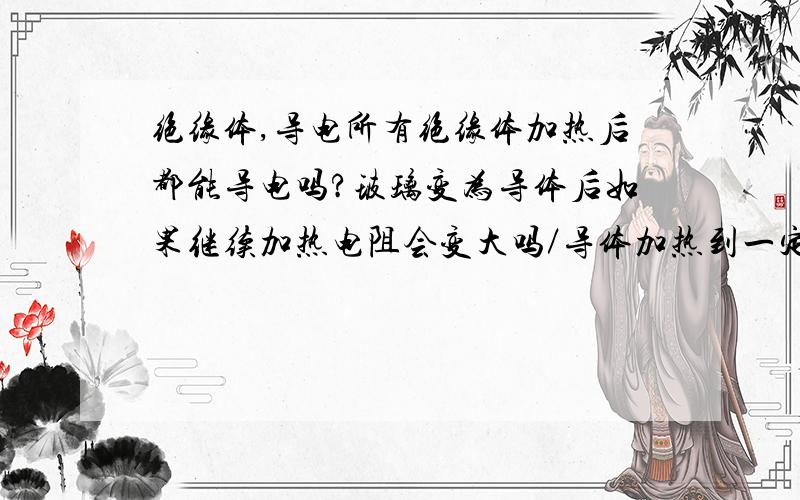 绝缘体,导电所有绝缘体加热后
都能导电吗?玻璃变为导体后如
果继续加热电阻会变大吗/导体加热到一定